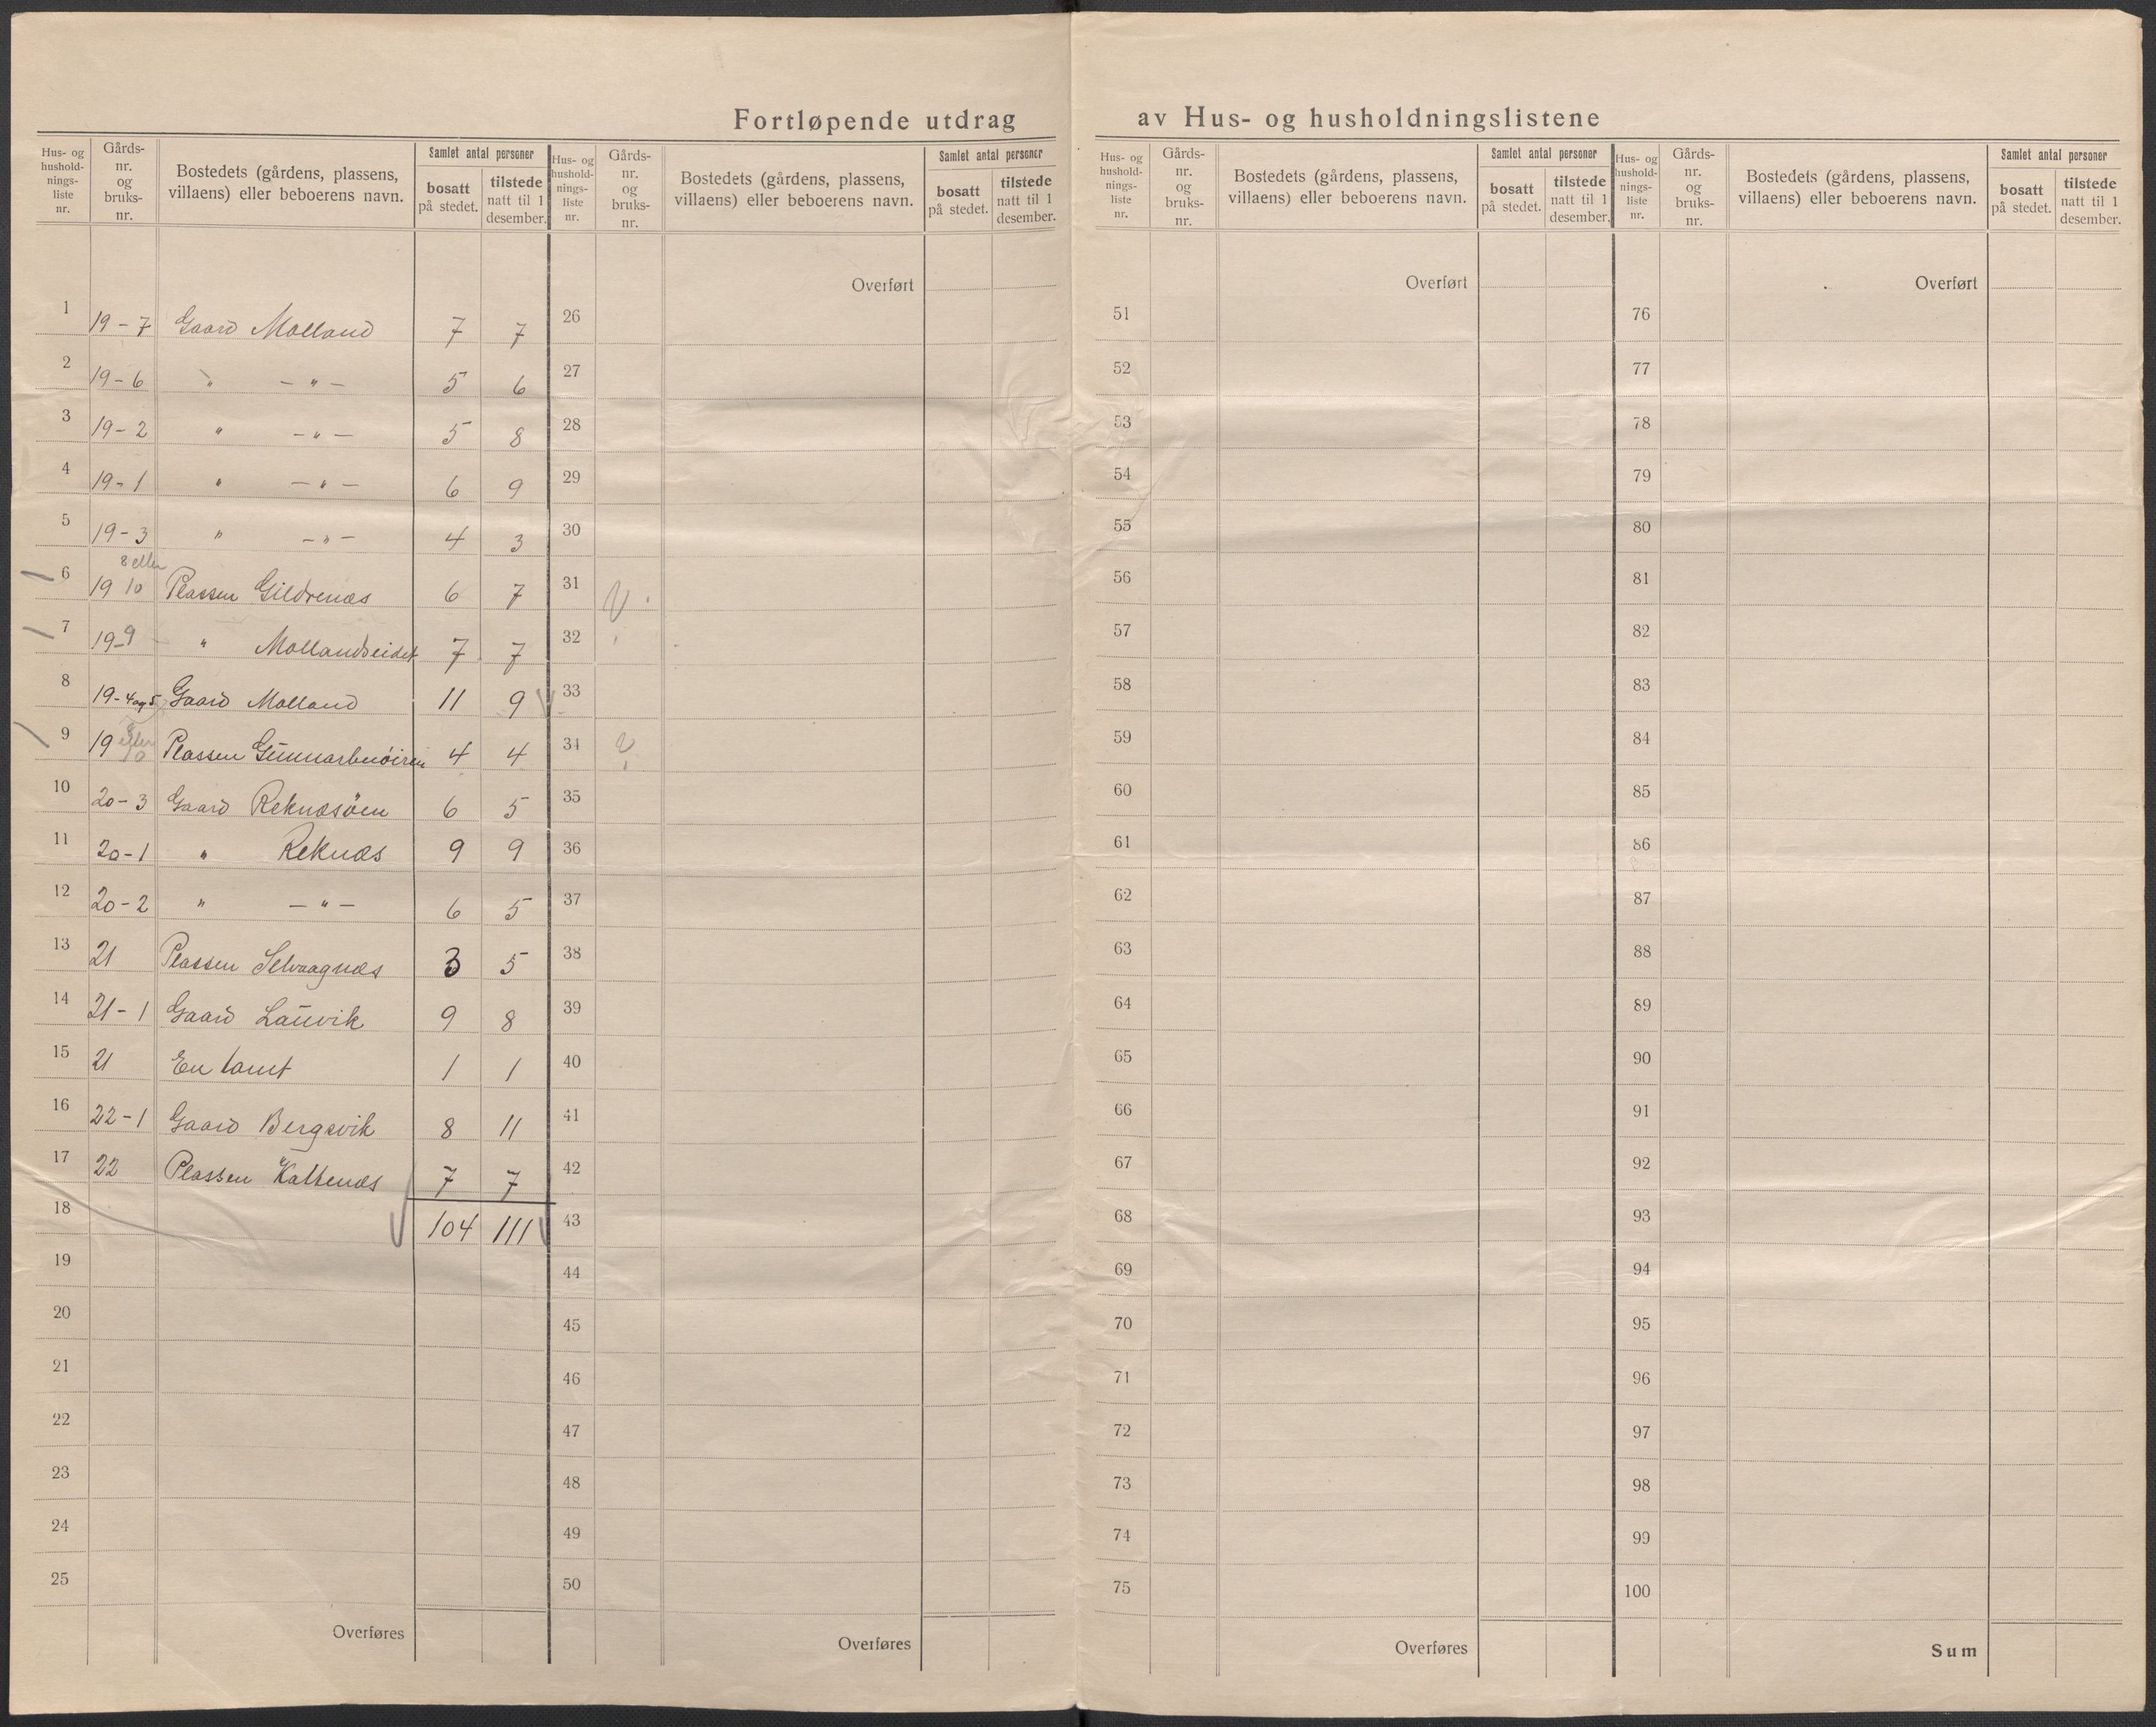 Fortløpende utdrag av Hus- og husholdningslistene
Hus- og hushold-nings-liste nr. | Gårds-nr. og bruks-nr. | Bostedets (gårdens, plassens, villaens) eller beboerens navn. | Samlet antal personer | bosatt på stedet. | tilstede natt til 1 desember.
1 19-7 Gaard Molland 7 7
2 19-6 " -"- 5 6
3 19-2 " -"- 5 8
4 19-1 " -"- 6 9
5 19-3 " -"- 4 3
8 eller
6 19 10 Plassen Gildrenæs 6 7
7 19-9 " Mollandseidet 7 7
8 19-4og5 Gaard Molland 11 9
9 19 8 eller 10 Plassen 4 4
10 20-3 Gaard Reknæsöen 6 5
11 20-1 " Reknæs 9 9
12 20-2 " -"- 6 5
13 21 Plassen Selvaagnæs 3 5
14 21-1 Gaard Lauvik 9 8
15 21 En tomt 1 1
16 22-1 Gaard Bergsvik 8 11
17 22 Plassen Kattenæs 7 7
18 104 111
19
20
21
22
23
24
25
Overføres
Hus- og hushold-nings-liste nr. | Gårds-nr. og bruks-nr. | Bostedets (gårdens, plassens, villaens) eller beboerens navn. | Samlet antal personer | bosatt på stedet. | tilstede natt til 1 desember.
Overført
26
27
28
29
30
31
32
33
34
35
36
37
38
39
40
41
42
43
44
45
46
47
48
49
50
Overføres
Hus- og hushold-nings-liste nr. | Gårds-nr. og bruks-nr. | Bostedets (gårdens, plassens, villaens) eller beboerens navn. | Samlet antal personer | bosatt på stedet. | tilstede natt til 1 desember.
Overført
51
52
53
54
55
56
57
58
59
60
61
62
63
64
65
66
67
68
69
70
71
72
73
74
75
Overføres
Hus- og hushold-nings-liste nr. | Gårds-nr. og bruks-nr. | Bostedets (gårdens, plassens, villaens) eller beboerens navn. | Samlet antal personer | bosatt på stedet. | tilstede natt til 1 desember.
Overført
76
77
78
79
80
81
82
83
84
85
86
87
88
89
90
91
92
93
94
95
96
97
98
99
100
Sum